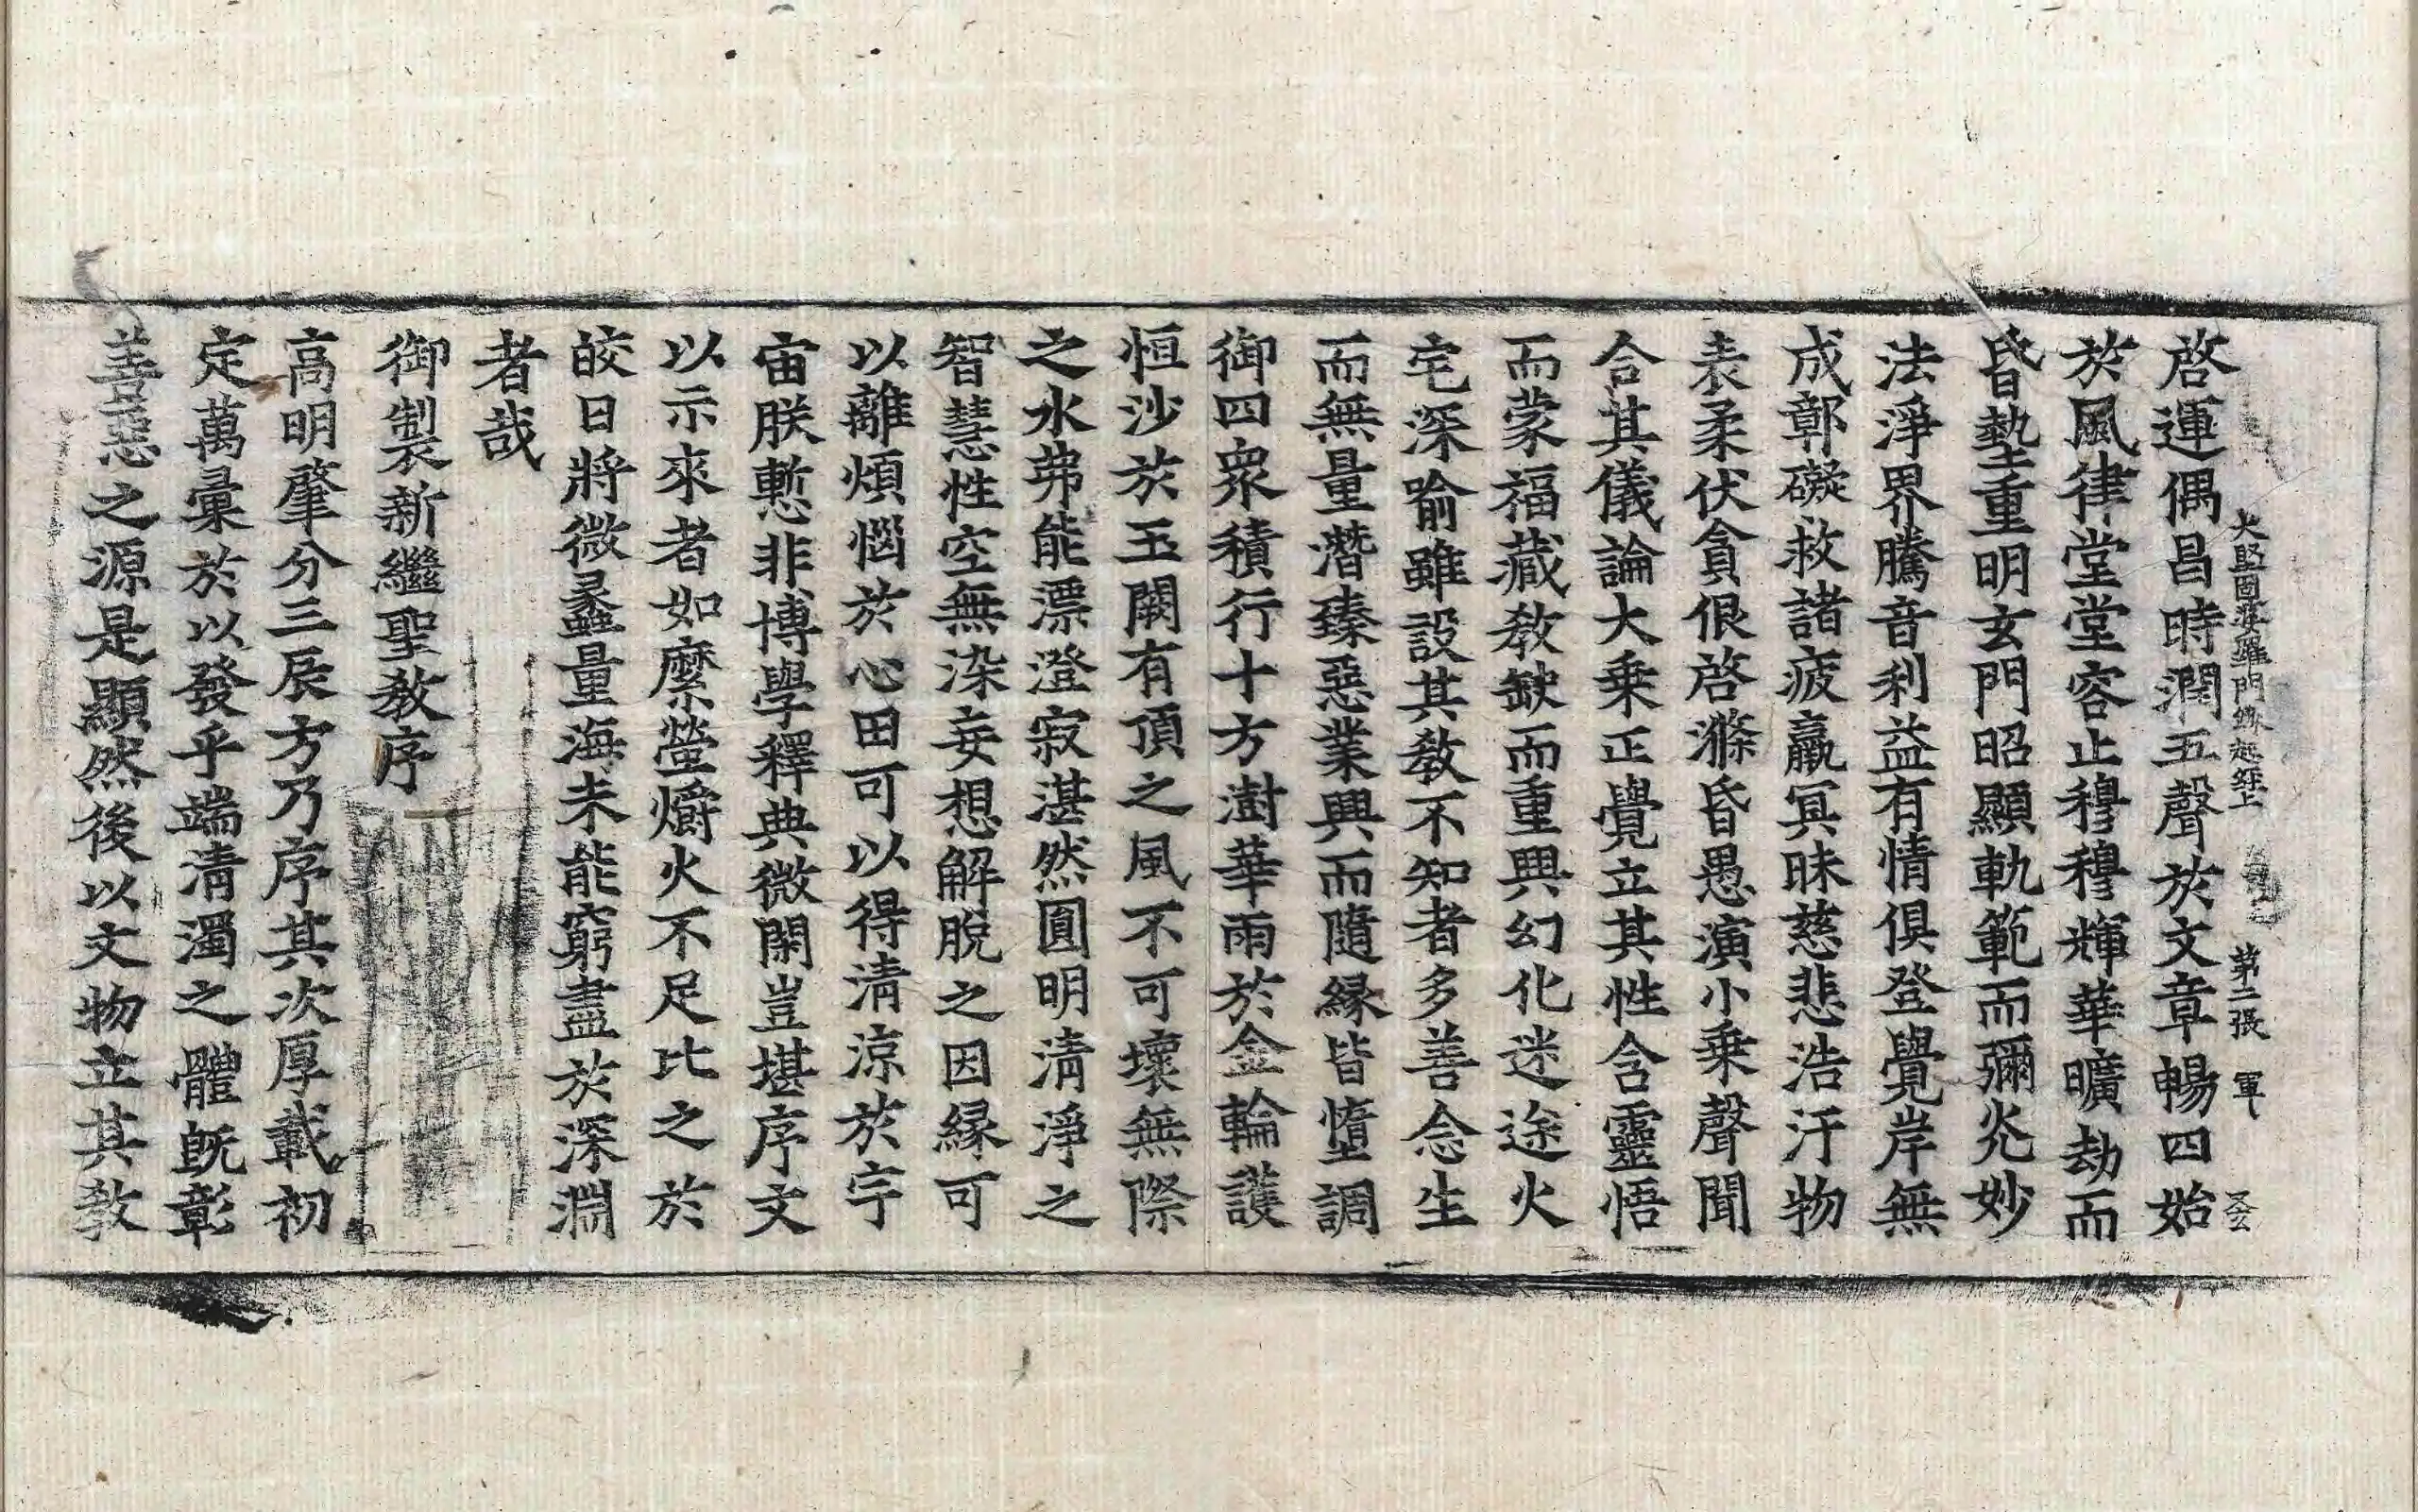 大堅固婆羅門緣起經上 第二張 軍
啓運偶昌時潤五聲於文章暢四始
於風律堂堂容止穆穆輝華曠劫而
昏墊重明玄門昭顯軌範而彌光妙
法淨界騰音利益有情俱登覺岸無
成鄣礙救諸疲羸冥昧慈悲浩汗物
表柔伏貪佷啓滌昏愚演小乗聲聞
合其儀論大乗正覺立其性含靈悟
而蒙福藏教缺而重興幻化迷途火
宅深喻雖設其教不知者多善念生
而無量潛臻惡業興而隨縁皆墮調
御四衆積行十方澍華雨於金輪護
恒沙於玉闕有頂之風不可壞無際
之水弗能漂澄寂湛然圓明清淨之
智慧性空無染妄想解脫之因縁可
以離煩惱於心田可以得清涼於宇
宙朕慙非博學釋典微閑豈堪序文
以示來者如縻螢爝火不足比之於
皎日將微蠡量海未能窮盡於深淵
者哉
御製新繼聖教序
高明肇分三辰方乃序其次厚載初
定萬彙於以發乎端清濁之體旣彰
善惡之源是顯然後以文物立其教